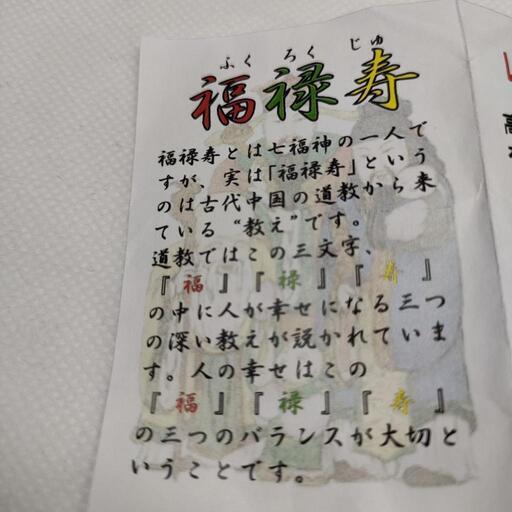 ふく ろく じゅ
福禄寿
福禄寿とは七福神の一人で
すが、実は「福禄寿」という
のは古代中国の道教から来
ている“教え”です。
道教ではこの三文字、
『福』『禄』『寿』
の中に人が幸せになる三つ
の深い教えが説かれていま
す。人の幸せはこの
『福』『禄』『寿』
の三つのバランスが大切と
いうことです。